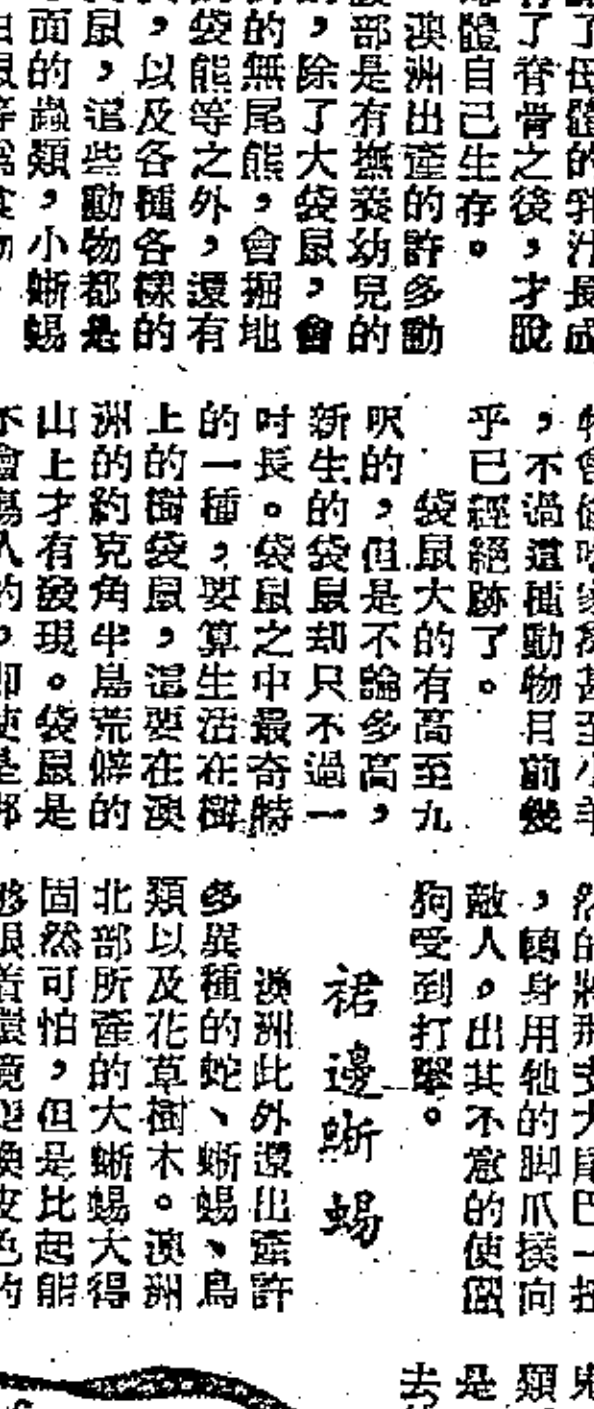 了母體的乳汁長成
了脊骨之後，才脫
體自己生存。
澳洲出產的許多動
部是有撫養幼兒的
，除了大袋鼠，會
的無尾熊，會掘地
袋熊等之外，還有
，以及各種各樣的
鼠，這些動物都是
面的蟲類，小蜥蜴
，不過這種動物目前幾
乎已經絕跡了。
袋鼠大的有高至九
呎的，但是不論多高，
新生的袋鼠却只不過一
吋長。袋鼠之中最奇特
的一種，要算生活在樹
上的樹袋鼠，這要在澳
洲的約克角半島荒僻的
山上才有發現。袋鼠是
不會傷人的，即使是那
然的將那支大尾巴一扭
，轉身用牠的脚爪撲向
敵人，出其不意的使圂
狗受到打擊。
裙邊蜥蜴
澳洲此外還出產許
多異種的蛇、蜥蜴、鳥
類以及花草樹木。澳洲
北部所產的大蜥蜴大得
固然可怕，但是比起能
够跟着環境變換皮色的
類
是
去